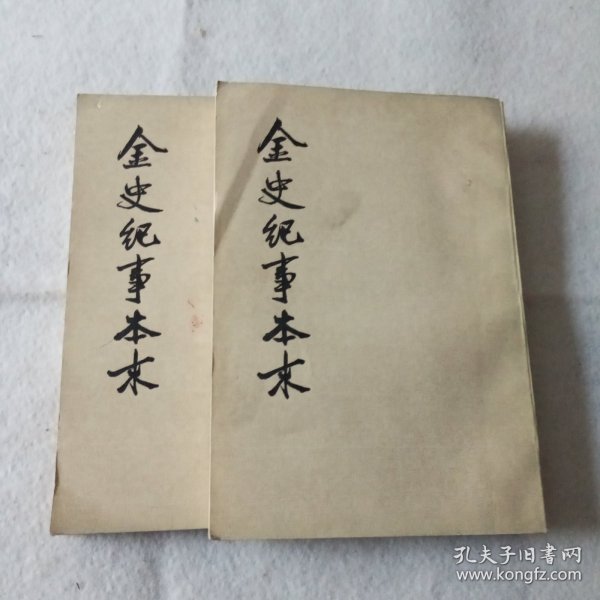 金史纪事本末
金史纪事本末
孔夫子旧书网
www.kongfz.com